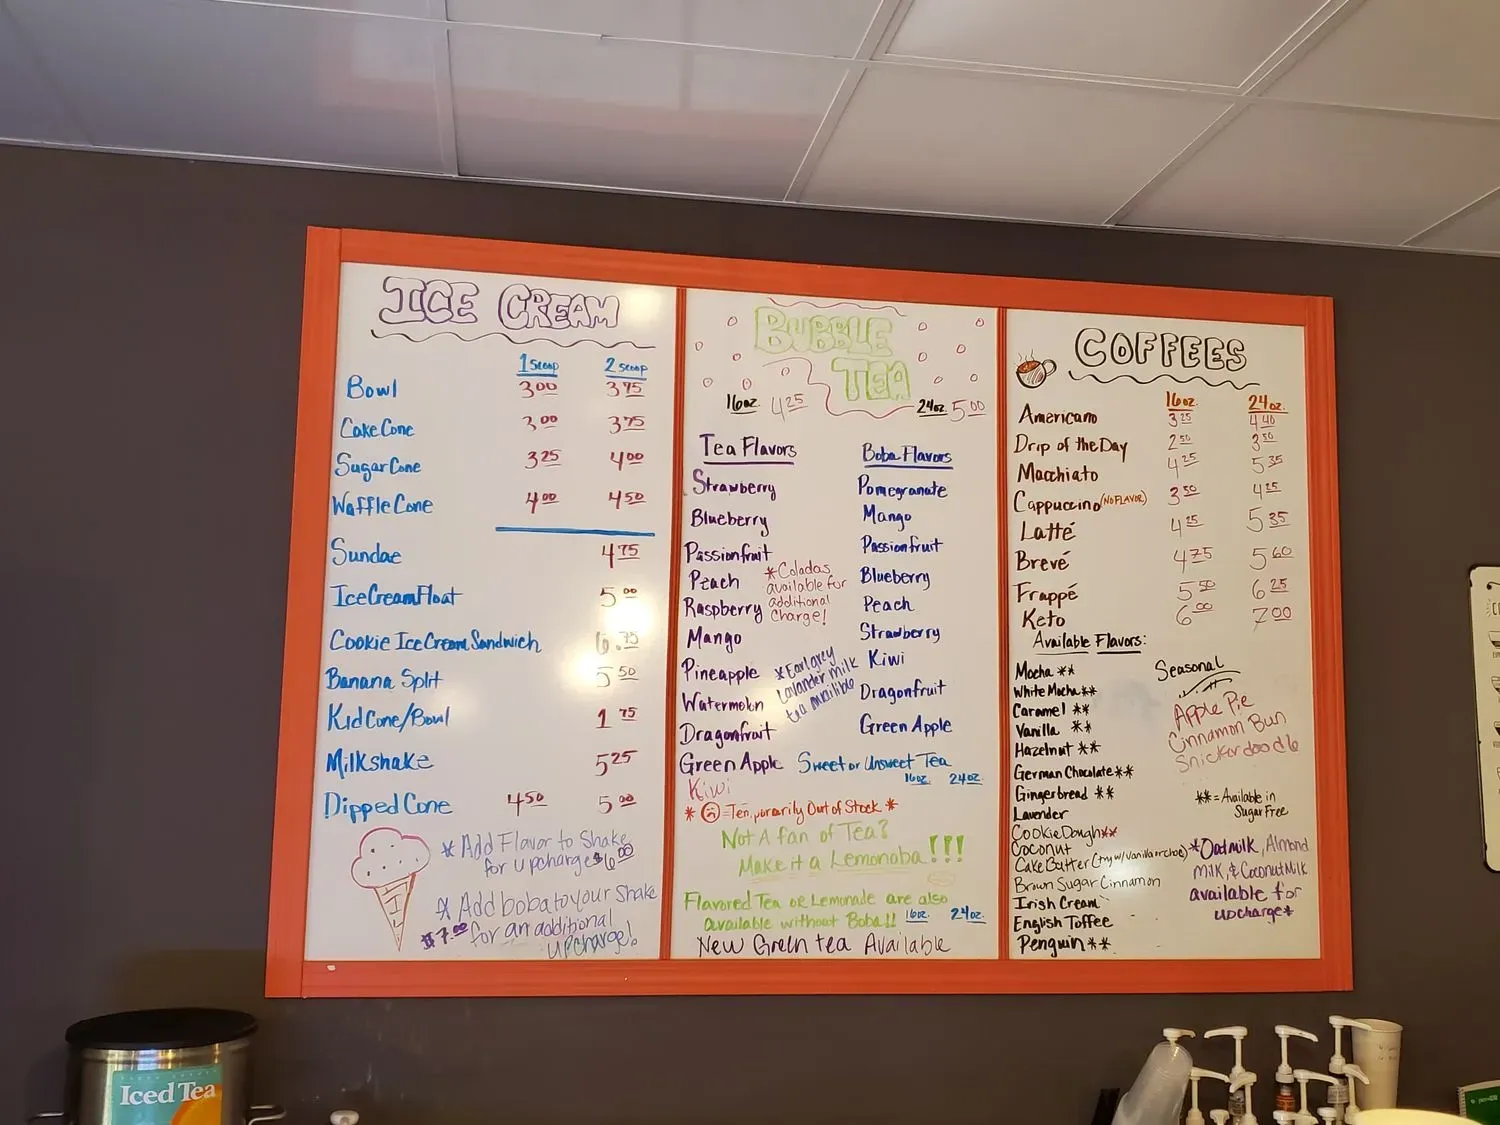 ICE CREAM
1 scoop 2 scoop
Bowl 3.00 3.75
Cake Cone 3.00 3.75
Sugar Cone 3.25 4.00
Waffle Cone 4.00 4.50
Sundae 4.75
Ice Cream Float 5.00
Cookie Ice Cream Sandwich 6.75
Banana Split 5.50
Kid Cone/Bowl 1.75
Milkshake 5.25
Dipped Cone 4.50 5.00
* Add Flavor to Shake
for upcharge $6.00
* Add boba to your Shake
$7.00 for an additional
upcharge!
BUBBLE
TEA
16oz. 4.25 24oz. 5.00
Tea Flavors
Strawberry
Blueberry
Passionfruit
Peach
Raspberry
Mango
Pineapple
Watermelon
Dragonfruit
Green Apple
Kiwi
*Coladas
available for
additional
charge!
*Earl grey
Lavander milk
tea availible
Boba Flavors
Pomegranate
Mango
Passionfruit
Blueberry
Peach
Strawberry
Kiwi
Dragonfruit
Green Apple
Sweet or Unsweet Tea
16oz. 24oz.
* = Temporarily Out of Stock *
Not A fan of Tea?
Make it a Lemonoba!!!
Flavored Tea or Lemonade are also
available without Boba!! 16oz. 24oz.
New Green tea Available
COFFEES
16oz. 24oz.
Americano 3.25 4.40
Drip of the Day 2.50 3.50
Macchiato 4.25 5.35
Cappuccino (NO FLAVOR) 3.50 4.25
Latté 4.25 5.35
Brevé 4.75 5.60
Frappé 5.50 6.25
Keto 6.00 7.00
Available Flavors:
Mocha **
White Mocha **
Caramel **
Vanilla **
Hazelnut **
German Chocolate **
Gingerbread **
Lavender
Cookie Dough **
Coconut
Cake Batter (try w/ vanilla or choc)
Brown Sugar Cinnamon
Irish Cream
English Toffee
Penguin **
Seasonal
Apple Pie
Cinnamon Bun
Snickerdoodle
** = Available in
Sugar Free
*Oatmilk, Almond
Milk, & Coconut Milk
available for
upcharge*
Iced Tea